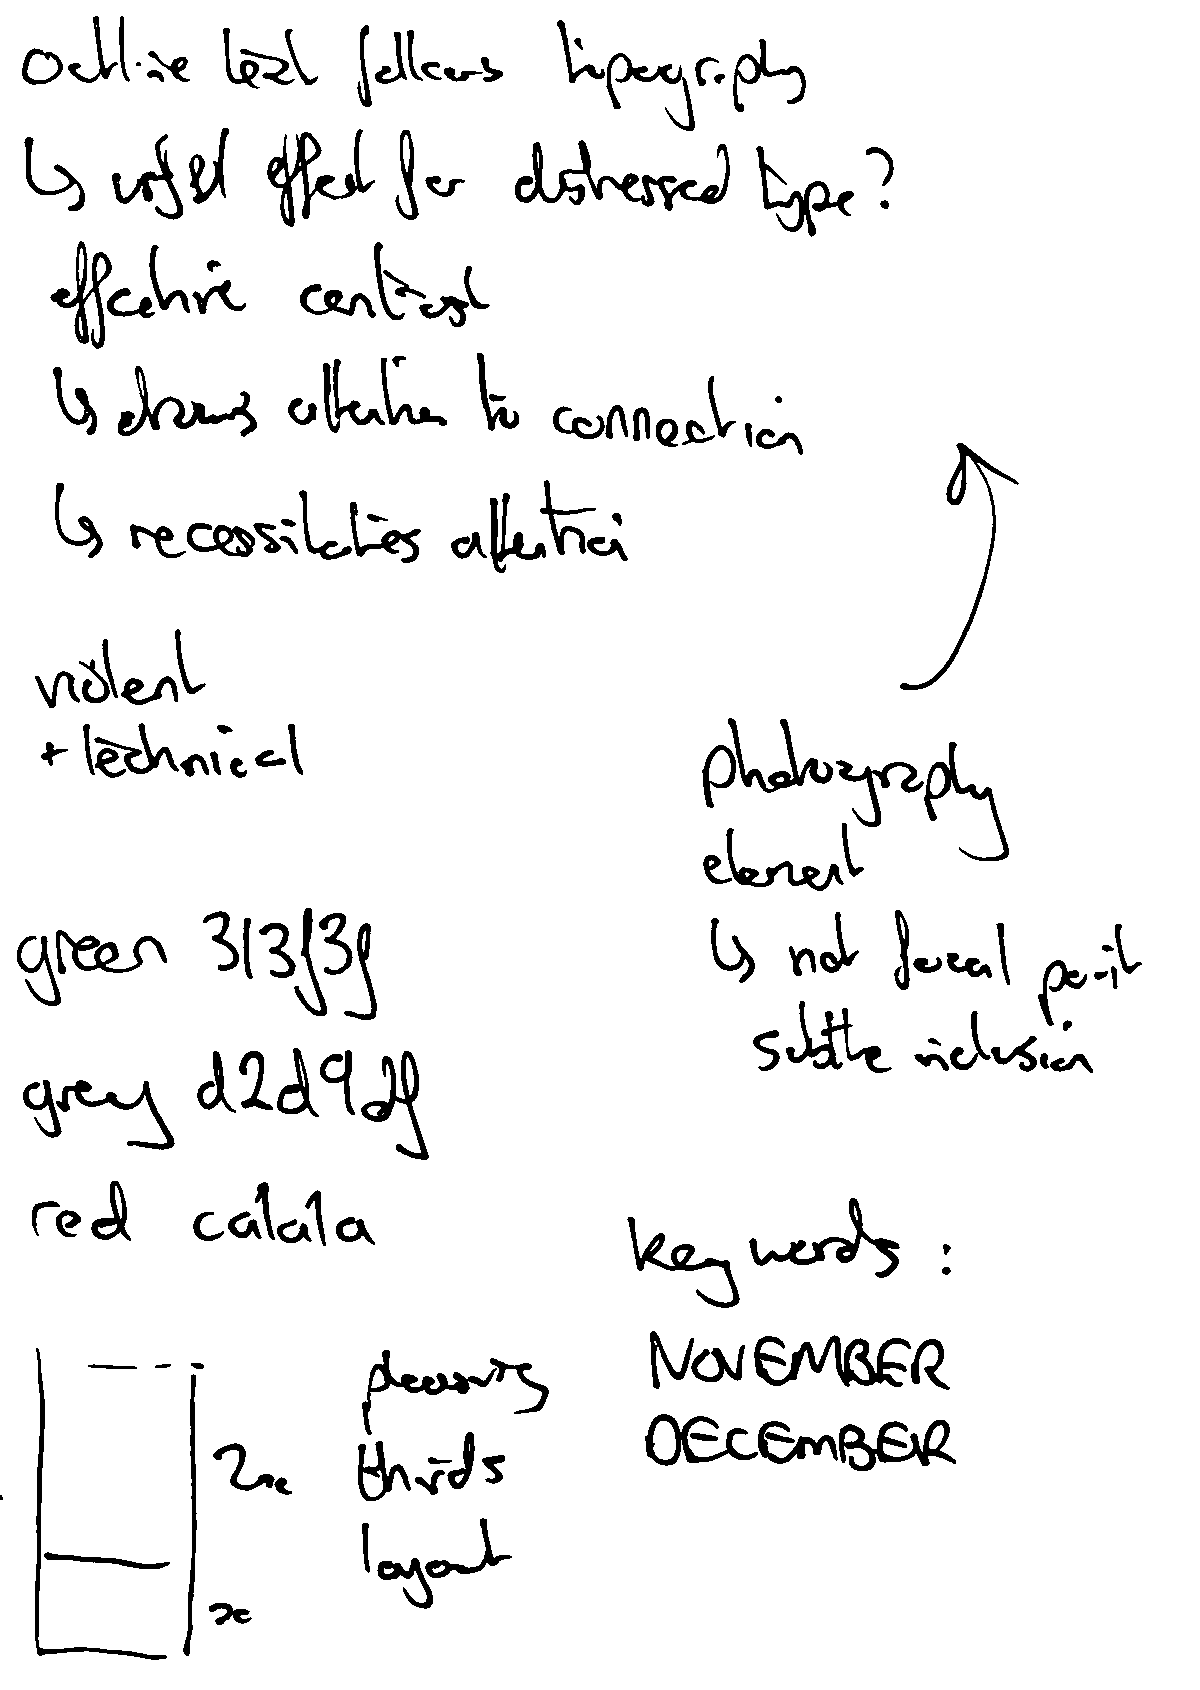 outline text follows typography
↳ offset effect for distressed type?
effective contrast
↳ draws attention to connection
↳ necessitates attention
violent
+ technical
photography
element
↳ not focal point
subtle inclusion
green 313f3f
grey d2d9df
red ca1a1a
key words :
NOVEMBER
DECEMBER
2x
x
pleasing
thirds
layout